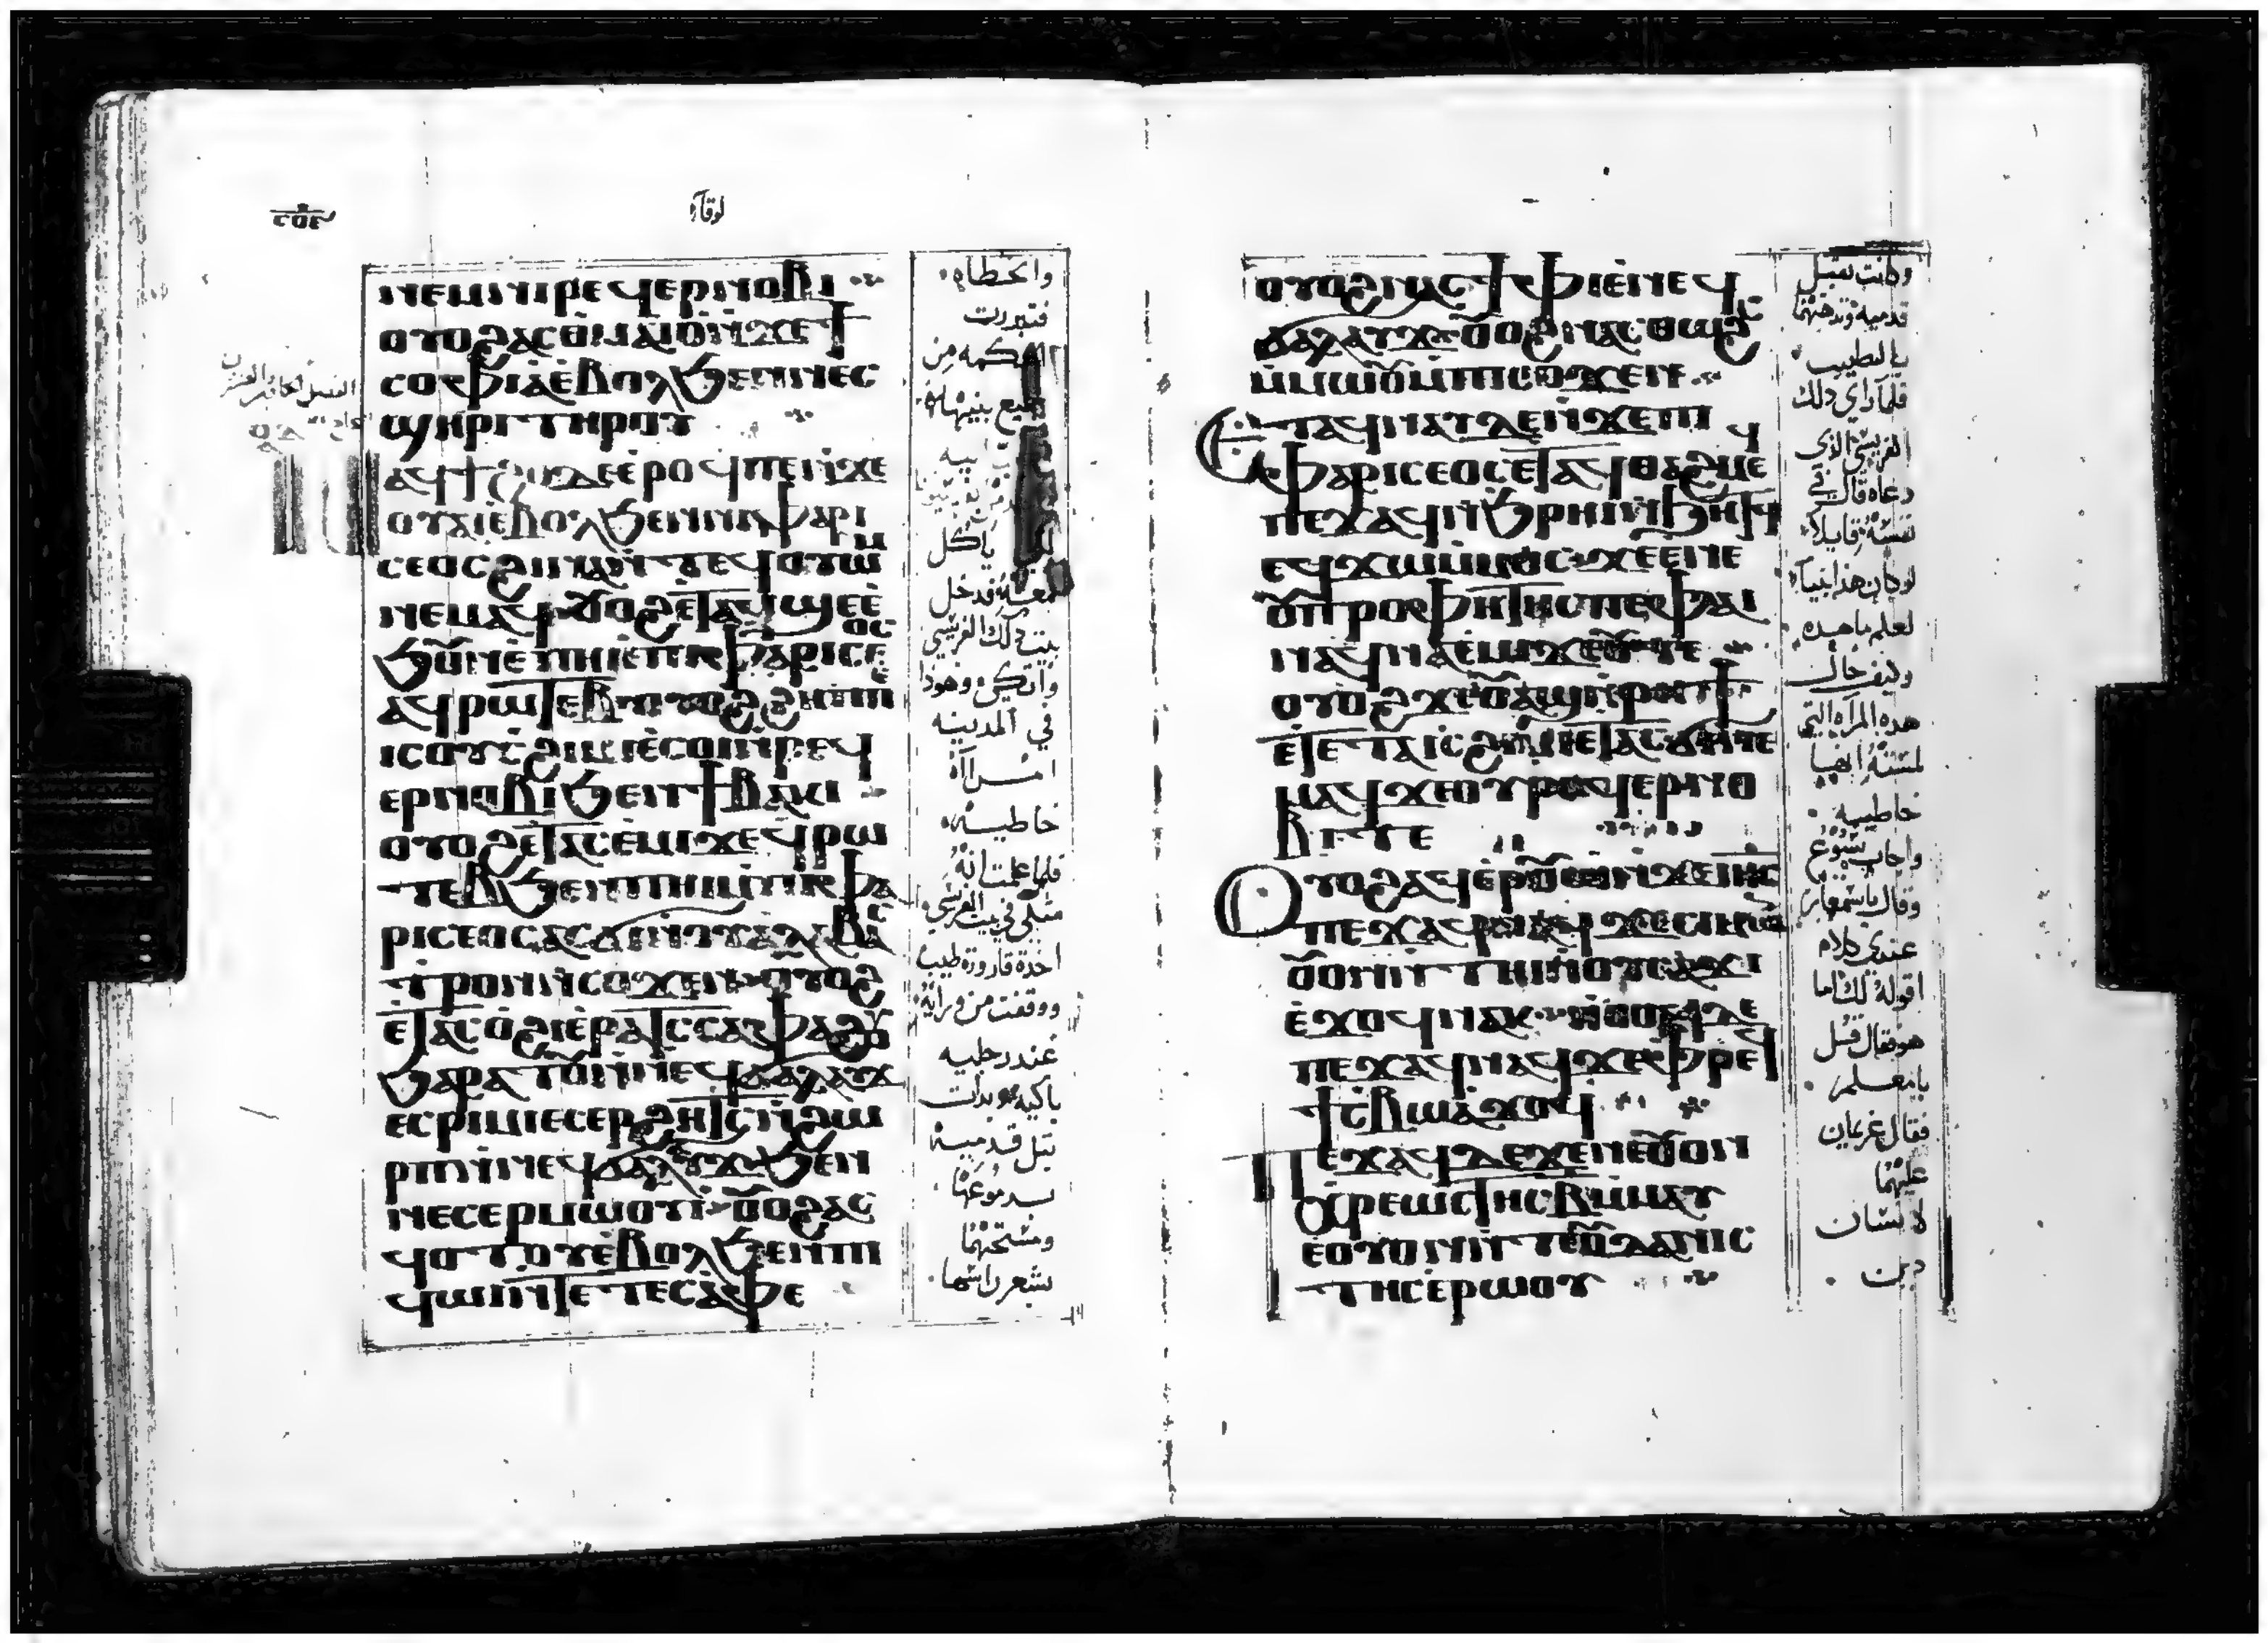 ⲥⲟⲉ
لوقا
ⲛⲉⲙⲛⲓⲣⲉϥⲉⲣⲛⲟⲃⲓ
ⲟⲩⲟϩⲁⲥⲑⲙⲁⲓⲟⲛϫⲉϯ
ⲥⲟⲫⲓⲁⲉⲃⲟⲗϧⲉⲛⲛⲉⲥ
ϣⲏⲣⲓⲧⲏⲣⲟⲩ
ⲁϥϯϩⲟⲇⲉⲉⲣⲟϥⲡⲉⲛϫⲉ
ⲟⲩⲁⲓⲉⲃⲟⲗϧⲉⲛⲛⲓⲫⲁⲣⲓ
ⲥⲉⲟⲥϩⲓⲛⲁⲛⲧⲉϥⲟⲩⲱⲙ
ⲛⲉⲙⲁϥⲟⲩⲟϩⲉⲧⲁϥϣⲉⲉ
ϧⲟⲩⲛⲉⲡⲏⲓⲙⲡⲓⲫⲁⲣⲓⲥⲉⲟⲥ
ⲁϥⲣⲱⲧⲉⲃⲟⲩⲟϩϩⲏⲡⲡⲉ
ⲓⲥⲟⲩⲥϩⲓⲙⲓⲉⲥⲟⲓⲛⲣⲉϥ
ⲉⲣⲛⲟⲃⲓϧⲉⲛϯⲃⲁⲕⲓ
ⲟⲩⲟϩⲉⲧⲁⲥⲉⲙⲓϫⲉϥⲣⲱ
ⲧⲉⲃϧⲉⲛⲡⲏⲓⲙⲡⲓⲫⲁ
ⲣⲓⲥⲉⲟⲥⲁⲥϭⲓⲛⲟⲩⲁⲗⲁⲃⲁⲥ
ⲧⲣⲟⲛⲛⲥⲟϫⲉⲛⲟⲩⲟϩ
ⲉⲧⲁⲥⲟϩⲓⲉⲣⲁⲧⲥⲥⲁⲫⲁϩⲟⲩ
ϧⲁⲣⲁⲧⲟⲩⲛⲛⲉϥϭⲁⲗⲁⲩϫ
ⲉⲥⲣⲓⲙⲓⲉⲥⲉⲣϩⲏⲧⲥⲛϩⲱ
ⲣⲡⲛⲛⲉϥϭⲁⲗⲁⲩϫϧⲉⲛ
ⲛⲉⲥⲉⲣⲙⲱⲟⲩⲓⲟⲩⲟϩⲁⲥ
ϥⲟⲧⲟⲩⲉⲃⲟⲗϧⲉⲛⲡⲓ
ϥⲱⲓⲛⲧⲉⲧⲉⲥⲁⲫⲉ
والخطاه
فتبررت
الحكمه من
جميع بنيها
ياكل
معه فدخل
بيت ذلك الفريسي
واتكى وهوذا
في المدينه
امراة
خاطيه
فلما علمت انه
متكي في بيت الفريسي
اخذة قارورة طيب
ووقفت من ورايه
عند رجليه
باكيه وبدات
تبل قدميه
بدموعها
ومسحتهما
بشعر راسها
ⲟⲩⲟϩⲛⲁⲥϯⲫⲓⲉⲛⲉϥ
ϭⲁⲗⲁⲩϫⲟⲩⲟϩⲛⲁⲥⲑⲱϩⲥ
ⲙⲙⲱⲟⲩⲙⲡⲓⲥⲟϫⲉⲛ
ⲉⲧⲁϥⲛⲁⲩⲇⲉⲛϫⲉⲡⲓ
ⲫⲁⲣⲓⲥⲉⲟⲥⲉⲧⲁϥⲑⲁϩⲙⲉϥ
ⲡⲉϫⲁϥⲛϧⲣⲏⲓⲛϧⲏⲧϥ
ⲉϥϫⲱⲙⲙⲟⲥϫⲉⲉⲛⲉ
ⲟⲩⲡⲣⲟⲫⲏⲧⲏⲥⲡⲉⲫⲁⲓ
ⲛⲁϥⲛⲁⲉⲙⲓϫⲉⲟⲩⲧⲉ
ⲟⲩⲟϩϫⲉⲟⲩⲁϣⲛⲣⲏϯ
ⲉⲧⲉⲧⲁⲓⲥϩⲓⲙⲓⲉⲧⲁⲥϭⲓⲛⲉ
ⲙⲁϥϫⲉⲟⲩⲣⲉϥⲉⲣⲛⲟ
ⲃⲓⲧⲉ
ⲟⲩⲟϩⲁϥⲉⲣⲟⲩⲱⲛϫⲉⲓⲏⲥ
ⲡⲉϫⲁϥⲛⲁϥϫⲉⲥⲓⲙⲱⲛ
ⲟⲩⲟⲛⲛⲧⲏⲓⲛⲟⲩⲥⲁϫⲓ
ⲉϫⲟϥⲛⲁⲕⲛⲑⲟϥⲇⲉ
ⲡⲉϫⲁϥⲛⲁϥϫⲉⲫⲣⲉϥ
ϯⲥⲃⲱⲁϫⲟϥ
ⲡⲉϫⲁϥⲇⲉϫⲉⲛⲉⲟⲩⲟⲛ
ⲭⲣⲉⲱⲥⲧⲏⲥⲃⲙⲙⲁⲩ
ⲉⲟⲩⲟⲛⲛⲧⲉⲟⲩⲇⲁⲛⲓⲥ
ⲧⲏⲥⲉⲣⲱⲟⲩ
وكانت تقبل
قدميه وتدهنهما
بالطيب
فلما راي ذلك
الفريسي الذي
دعاه قال في
نفسه قايلا
لو كان هذا نبيا
لعلم ما هيه
وكيف حال
هذه المراه التي
لمسته انها
خاطيه
واجاب يسوع
وقال يا سمعان
عندي كلام
اقوله لك اما
هو فقال قل
يا معلم
فقال غريمان
عليهما
لانسان
دين